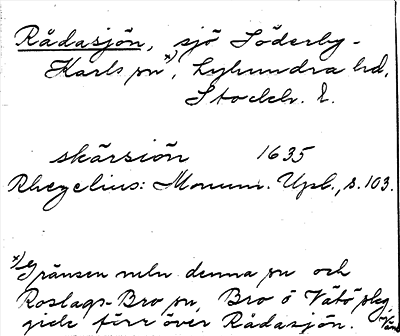 Rådasjön, sjö Söderby-
Karls sn x), Lyhundra hd,
Stockh. l.
skärsiön 1635
Rhezelius: Monum. Upl., s. 103.
x) Gränsen mln denna sn och
Roslags-Bro sn, Bro o Vätö
gick förr över Rådasjön.